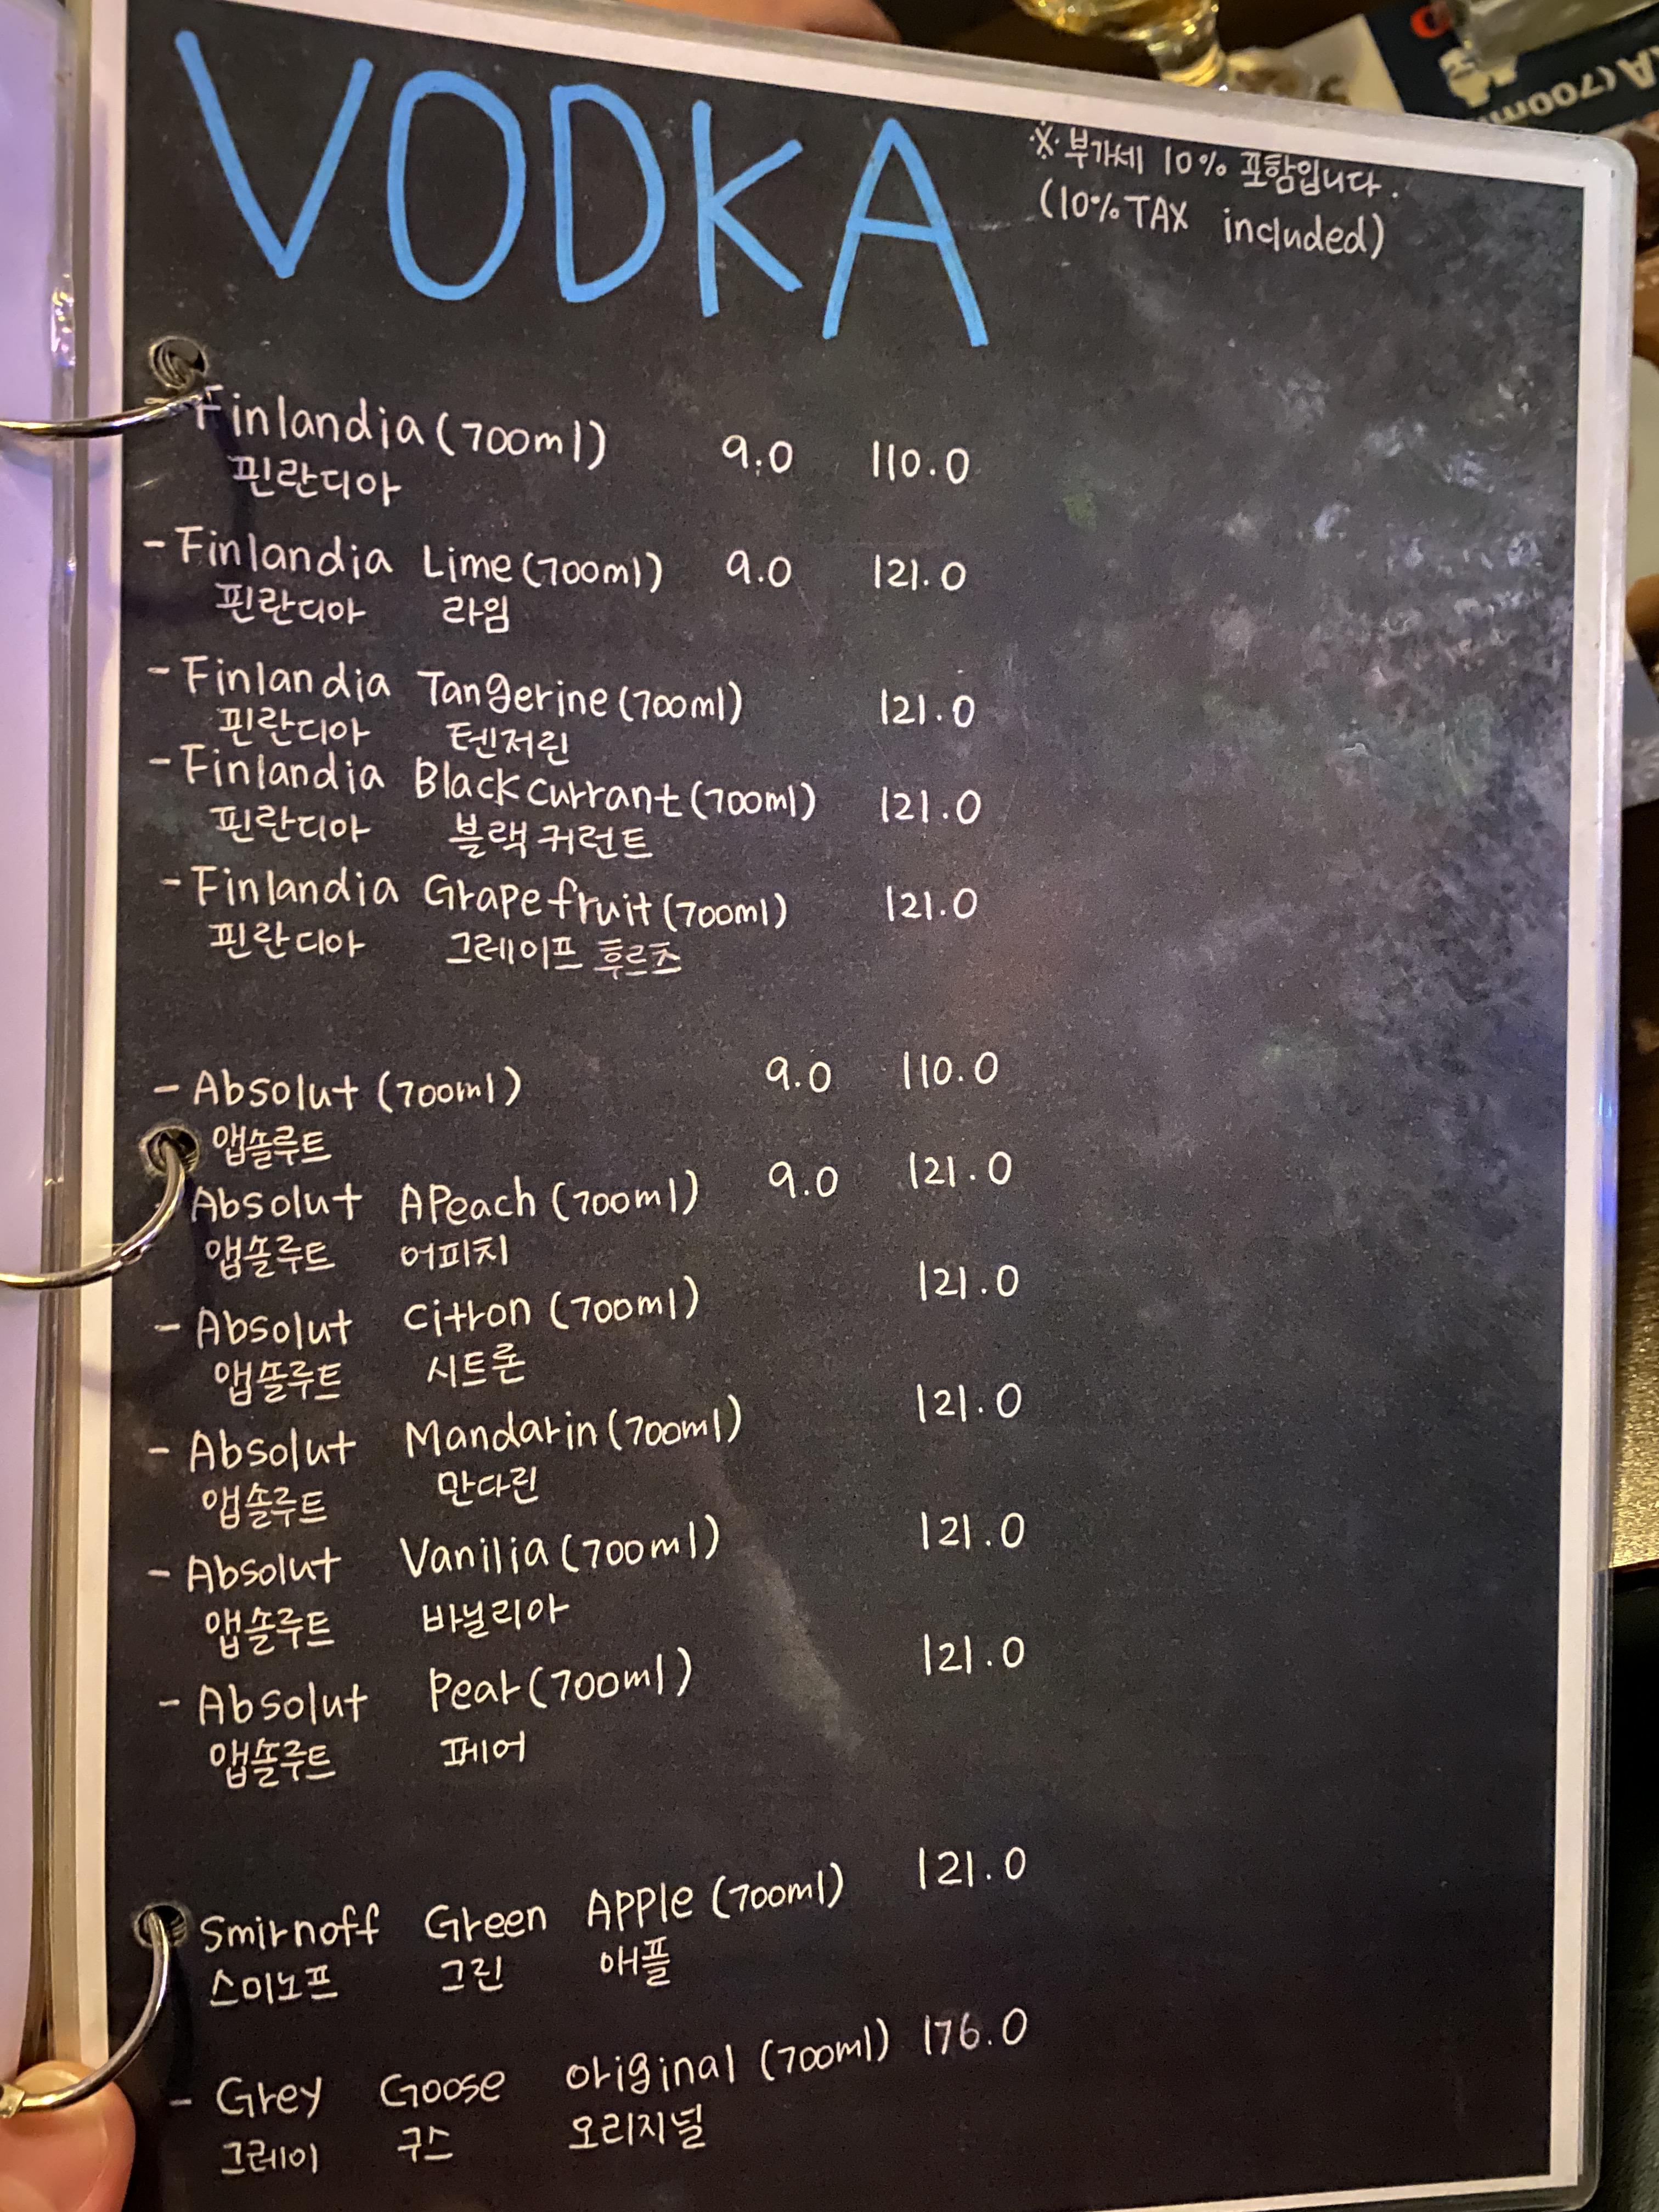 VODKA
※ 부가세 10% 포함입니다.
(10% TAX included)
- Finlandia (700ml) 9.0 110.0
핀란디아
- Finlandia Lime (700ml) 9.0 121.0
핀란디아 라임
- Finlandia Tangerine (700ml) 121.0
핀란디아 텐저린
- Finlandia Blackcurrant (700ml) 121.0
핀란디아 블랙커런트
- Finlandia Grapefruit (700ml) 121.0
핀란디아 그레이프 후르츠
- Absolut (700ml) 9.0 110.0
앱솔루트
Absolut APeach (700ml) 9.0 121.0
앱솔루트 어피치
- Absolut Citron (700ml) 121.0
앱솔루트 시트론
- Absolut Mandarin (700ml) 121.0
앱솔루트 만다린
- Absolut Vanilia (700ml) 121.0
앱솔루트 바닐리아
- Absolut Pear (700ml) 121.0
앱솔루트 페어
Smirnoff Green Apple (700ml) 121.0
스미노프 그린 애플
- Grey Goose original (700ml) 176.0
그레이 구스 오리지널
(700m